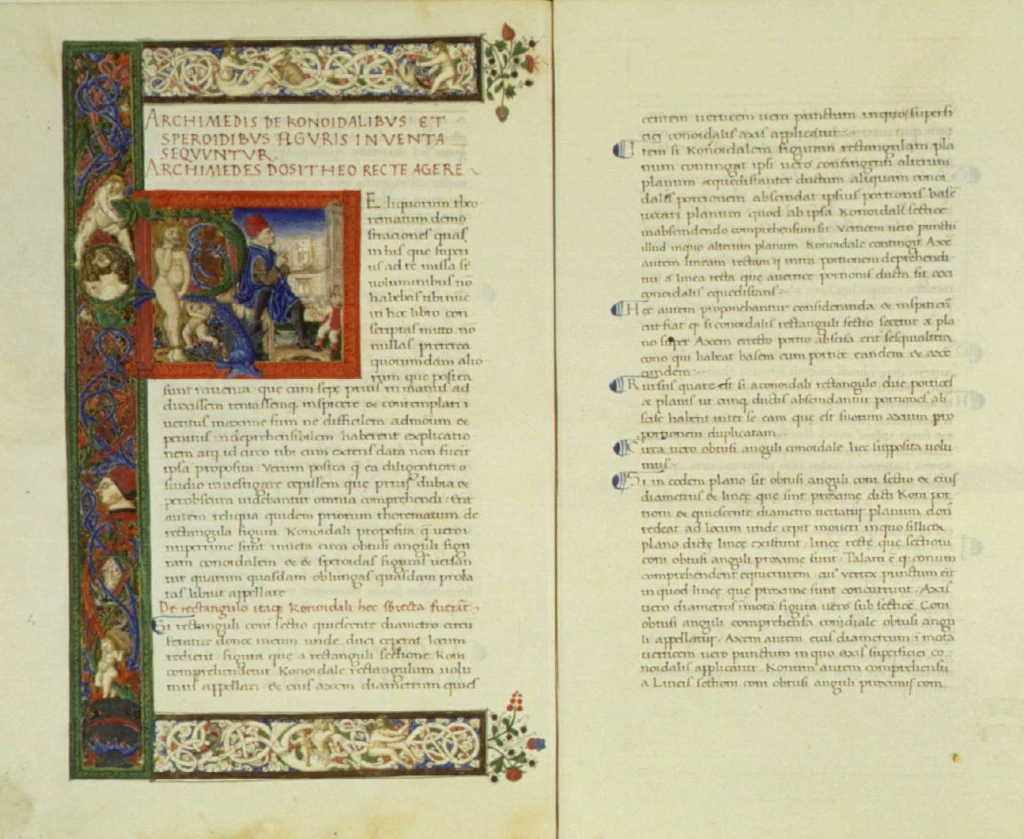 ARCHIMEDIS DE KONOIDALIBVS ET
SPEROIDIBVS FIGVRIS INVENTA
SEQVVNTVR.
ARCHIMEDES DOSITHEO RECTE AGERE
Eliquorum theo
rematum demo
strationes quas
in his que superi
us ad te missa st
uoluminibus no
habebas tibi nuc
in hoc libro con
scriptas mitto. no
nullas preterea
quorundam alio
rum que postea
sunt inuenta. que cum sepe prius in manus ad
duxissem tentassemq inspicere & contemplari
ueritus maxime sum ne difficilem admodum &
penitus indeprehensibilem haberent explicatio
nem atq id circo tibi cum ceteris data non fuerit
ipsa proposita. Verum postea q ea diligentiori
studio inuestigare cepissem que prius dubia &
perobscura uidebantur omnia comprehendi. Erat
autem reliqua quidem priorum theorematum de
rectangula figura Konoidali proposita q uero
nuperrime sunt inuenta circa obtusi anguli figu
ram conoidalem & & speroidas figuras uersan
tur quarum quasdam oblongas quasdam prola
tas libuit appellare
De rectangulo itaq Konoidali hec sbiecta fuerat
Si rectanguli coni sectio quiescente diametro circu
feratur donec iterum unde duci ceperat locum
redierit. figura que a rectanguli sectione Koni
comprehenditur Konoidale rectangulum uolu
mus appellari. & eius axem diametrum quies
centem uerticem uero punctum in quo superfi
ciei conoidalis axis applicatur.
Item si Konoidalem figuram rectangulam pla
num contingat ipsi uero contingenti alterum
planum equedistanter ductum aliquam conoi
dalis portionem abscindat ipsius portionis base
uocari planum quod ab ipsa Konoidali sectione
in abscindendo comprehensum sit. Verticem uero punctu
illud in quo alterum planum Konoidale contingit. Axe
autem lineam rectam q intra portionem deprehendi
tur a linea recta que a uertice portionis ducta sit axi
conoidalis equedistans.
Hec autem proponebantur consideranda & inspicien
cur fiat q si conoidalis rectanguli sectio secetur a pla
no super Axem erecto portio abscisa erit sesqualtera
cono qui habeat basem cum portione eandem & axe
eundem.
Rursus quare est si a conoidali rectangulo due portiones
a planis ut cunq ductis abscindantur portiones ab
scise habent inter se eam que est suorum axium pro
portionem duplicatam.
Circa uero obtusi anguli conoidale hec supposita uolu
mus.
Si in eodem plano sit obtusi anguli coni sectio & eius
diametrus & linee que sint proxime dicti Koni por
tioni & quiescente diametro uertatur planum donec
redeat ad locum unde cepit moueri in quo scilicet
plano dicte linee existunt. linee recte que sectioni
coni obtusi anguli proxime sunt. Palam e q conum
comprehendent equicrurem cui uertex punctum erit
in quod linee que proxime sunt concurrunt. Axis
uero diametros imota figura uero sub sectione Coni
obtusi anguli comprehensa conoidale obtusi angu
li appellatur. Axem autem eius diametrum imota
uerticem uero punctum in quo axis superficiei co
noidalis applicatur. Konum autem comprehensum
a Lineis sectioni coni obtusi anguli proximis com